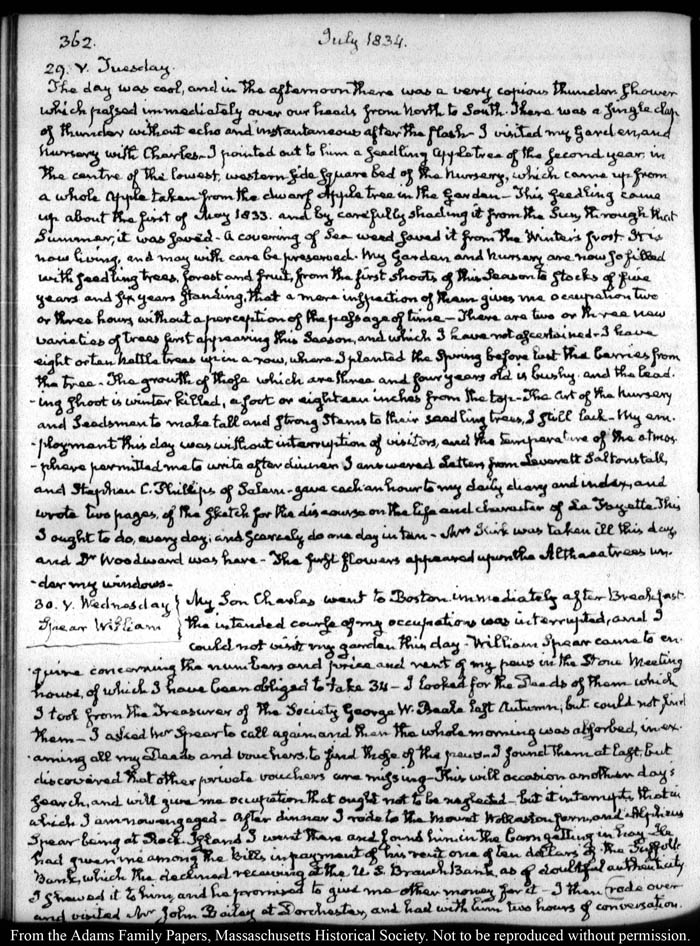 362. July 1834.
29. V. Tuesday.
The day was cool, and in the afternoon there was a very copious thunder shower
which passed immediately over our heads from North to South. There was a single clap
of thunder without echo and instantaneous after the flash – I visited my Garden, and
Nursery with Charles – I pointed out to him a seedling Apple tree of the second year, in
the centre of the lowest, western side square bed of the Nursery, which came up from
a whole Apple taken from the dwarf Apple tree in the Garden – This seedling came
up about the first of May 1833. and by carefully shading it from the Sun, through that
Summer, it was saved – A covering of Sea weed saved it from the Winter's frost. It is
now living, and may with care be preserved – My Garden and Nursery are now so filled
with seedling trees, forest and fruit, from the first shoots of this Season to Stocks of five
years and six years standing, that a mere inspection of them gives me occupation two
or three hours without a perception of the passage of time – There are two or three new
varieties of trees first appearing this Season, and which I have not ascertained – I have
eight or ten Nettle trees up in a row, where I planted the Spring before last the berries from
the tree – The growth of those which are three and four years old is bushy and the lead-
-ing shoot is winter killed, a foot or eighteen inches from the top – The Art of the Nursery
and Seedsmen to make tall and strong Stems to their seedling trees, I still lack – My em-
-ployment this day was without interruption of visitors, and the temperature of the atmos-
-phere permitted me to write after dinner. I answered Letters from Leverett Saltonstall,
and Stephen C. Phillips of Salem – gave each an hour to my daily diary and index, and
wrote two pages, of the sketch for the discourse on the life and character of La Fayette. This
I ought to do, every day; and scarcely do one day in ten – Mrs Kirk was taken ill this day,
and Dr Woodward was here – The first flowers appeared upon the Althaea trees un-
-der my windows –
30. V. Wednesday
Spear William
My Son Charles went to Boston immediately after Breakfast.
the intended course of my occupations was interrupted, and I
could not visit my garden this day – William Spear came to en-
-quire concerning the numbers and price and rent of my pews in the Stone Meeting
house, of which I have been obliged to take 34 – I looked for the Deeds of them which
I took from the Treasurer of the Society George W. Beale last Autumn; but could not find
them – I asked Mr Spear to call again, and then the whole morning was absorbed, in ex-
-amining all my Deeds and vouchers, to find those of the pews – I found them at last, but
discovered that other private vouchers are missing – This will occasion another day's
search, and will give me occupation that ought not to be neglected – but it interrupts that in
which I am now engaged – After dinner I rode to the Mount Wollaston farm, and Alpheus
Spear being at Rock Island I went there and found him in the Barn getting in hay. He
had given me among the bills in payment of his rent one of ten dollars of the Suffolk
Bank, which the declined receiving at the U.S. Branch Bank, as of doubtful authenticity
I shewed it to him, and he promised to give me other money for it – I then rode over
and visited Mr John Bailey at Dorchester, and had with him two hours of conversation.
From the Adams Family Papers, Massachusetts Historical Society. Not to be reproduced without permission.